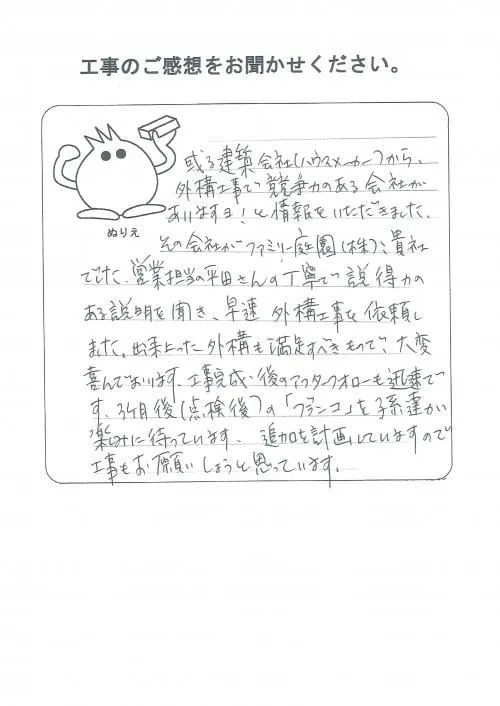 工事のご感想をお聞かせください。
ぬりえ
或る建築会社(ハウスメーカー)から、
外構工事で競争力のある会社が
ありますヨ!と情報をいただきました。
その会社がファミリー庭園(株);貴社
でした。営業担当の平田さんの丁寧で説得力の
ある説明を聞き、早速外構工事を依頼し
ました。出来上った外構も満足すべきもので、大変
喜んでおります。工事完成後のアフターフォローも迅速で
す。3ヶ月後(点検後)の「ブランコ」を子孫達が
楽しみに待っています。追加を計画していますので
工事もお願いしようと思っています。